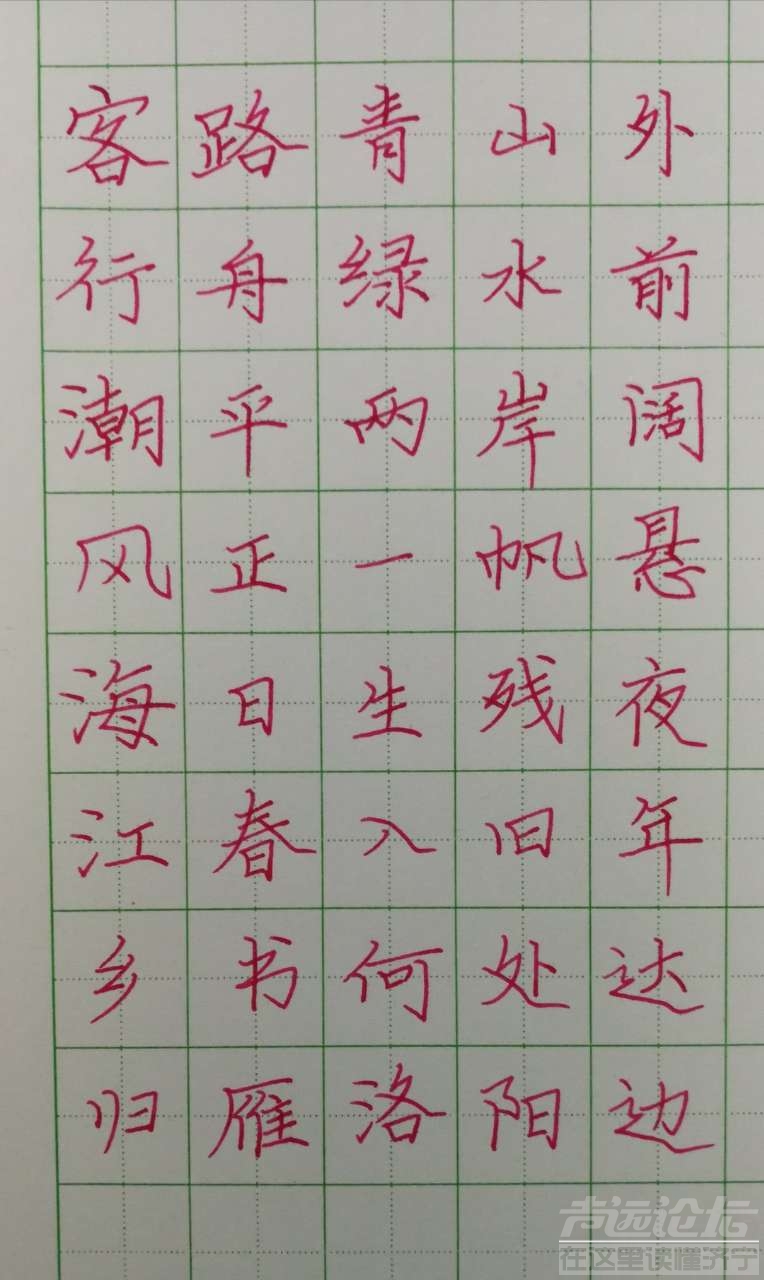 客路青山外
行舟绿水前
潮平两岸阔
风正一帆悬
海日生残夜
江春入旧年
乡书何处达
归雁洛阳边
声远论坛
在这里读懂济宁